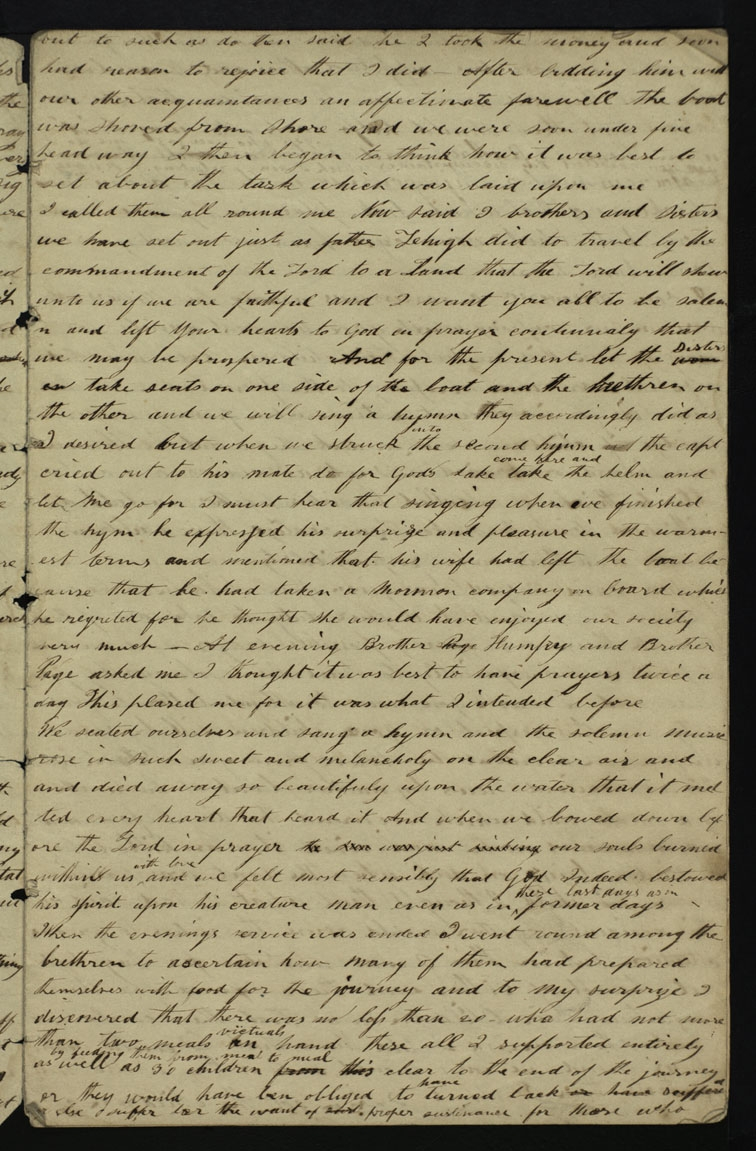 out to such as do then said he I took the money and soon
had reason to rejoice that I did — After bidding him and
our other acquaintances an affectinate farewell the boat
was shoved from shore and we were soon under five
head way I then began to think how it was best to
set about the task which was laid upon me
I called them all round me Now said I brothers and sisters
we have set out just as father Lehigh did to travel by the
commandment of the Lord to a land that the Lord will show
unto us if we are faithful and I want you all to be solem
n and lift your hearts to God in prayer continualy that
we may be prospered And for the present let the wom Sisters
en take seats on one side of the boat and the brethren on
the other and we will sing a hymn they accordingly did as
I desired but when we struck into the second hymn the capt
cried out to his mate do for Gods sake come here and take the helm and
let me go for I must hear that singing when we finished
the hym he expressed his surprize and pleasure in the warm-
est terms and mentioned that his wife had left the boat be
cause that he had taken a mormon company on board which
he regreted for he thought she would have enjoyed our society
very much — At evening Brother Page Humfry and Brother
Page asked me I thought it was best to have prayers twice a
day This plased me for it was what I intended before
We seated ourselves and sang a hymn and the solemn music
rose in such sweet and melancholy on the clear air and
and died away so beautifuly upon the water that it mel
ted every heart that heard it And when we bowed down bef
ore the Lord in prayer our souls burned
within us with love and we felt most sensibly that God indeed bestowed
his spirit upon his creature man even as in these last days as in former days
When the evenings service was ended I went round among the
brethren to ascertain how many of them had prepared
themselves with food for the journey and to my surprize I
discovered that there was no less than 20 who had not more
than two meals victuals on hand these all I supported entirely
as well as 30 children by feeding them from meal to meal from this clear to the end of the journey
or they would have ben obliged to have turned back or have suffered
or else suffer for the want of proper sustinance for those who